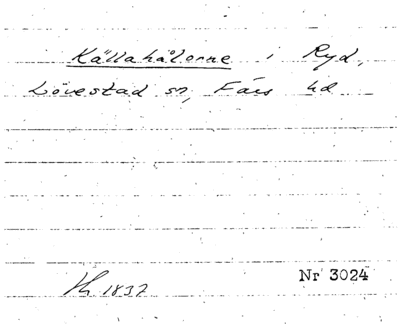 Källahålorne i Ryd,
Lövestad sn, Färs hd
1837
Nr 3024